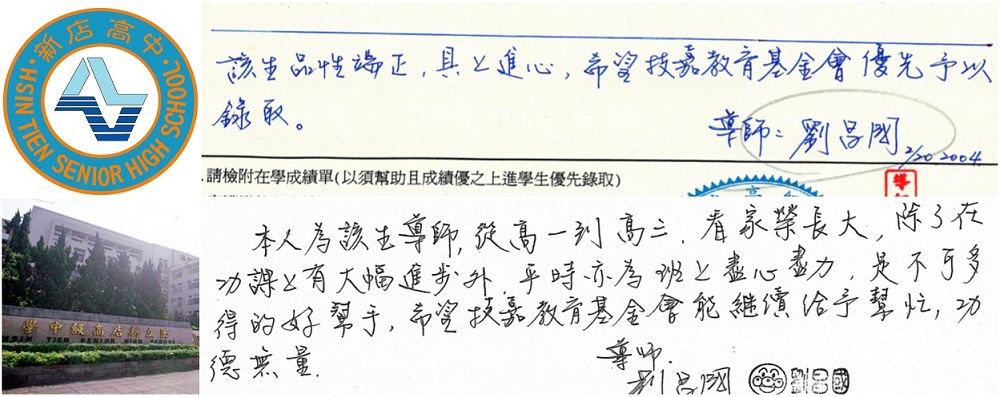 新店高中
HSIN TIEN SENIOR HIGH SCHOOL
該生品性端正,具上進心,希望技嘉教育基金會優先予以
錄取。
導師:劉昌國
2/20 2004
.請檢附在學成績單(以須幫助且成績優之上進學生優先錄取)
本人為該生導師,從高一到高三,看家榮長大,除了在
功課上有大幅進步外,平時亦為班上盡心盡力,是不可多
得的好幫手,希望技嘉教育基金會能繼續給予幫忙,功
德無量.
導師.
劉昌國 劉昌國
學中級高店新立國
HSIN TIEN SENIOR HIGH SCHOOL